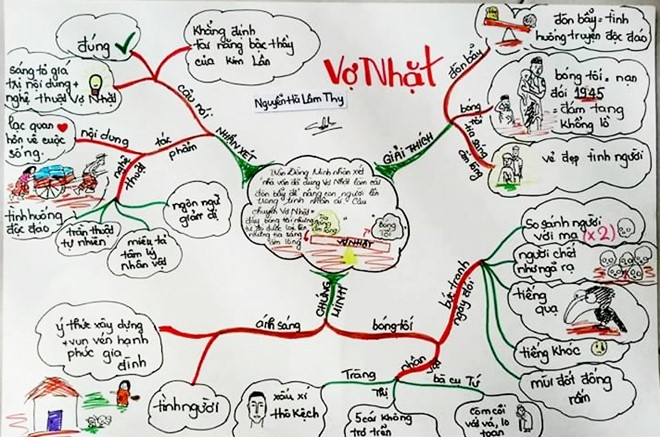 Vợ Nhặt
Nguyễn Hồ Lâm Thy
NHẬN XÉT
câu nói
đúng
Khẳng định
tài năng bậc thầy
của Kim Lân
sáng tỏ giá
trị nội dung +
nghệ thuật Vợ Nhặt
tác
phẩm
nội dung
lạc quan
hơn về cuộc
sống.
nghệ
thuật
tình huống
độc đáo
trần thuật
tự nhiên
miêu tả
tâm lý
nhân vật
ngôn ngữ
giản dị
GIẢI THÍCH
đòn bẩy
đòn bẩy = tình
huống truyện độc đáo
bóng
tối
bóng tối = nạn
đói 1945
= đám tang
khổng lồ
tia sáng
ấm lòng
vẻ đẹp tình người
Trần Đồng Minh nhận xét
nhà văn đã dùng Vợ Nhặt làm cái
đòn bẩy để nâng con người lên
trong tình nhân ái. Câu
chuyện Vợ Nhặt
đầy bóng tối nhưng
từ đó được lóe lên
những tia sáng
ấm lòng
tia sáng
ấm lòng
Bóng
Tối
VỢ NHẶT
CHỨNG
MINH
ánh sáng
ý thức xây dựng
+ vun vén hạnh
phúc gia
đình
tình người
bóng tối
bức tranh
ngày đói
So sánh người
với ma (x2)
người chết
như ngả rạ
tiếng
quạ
tiếng khóc
mùi đốt đống
rấm
nhân
vật
Tràng
xấu xí
thô kệch
Thị
5 cái không
trơ trẽn
bà cụ Tứ
Còm cõi
vất vả, lo
toan